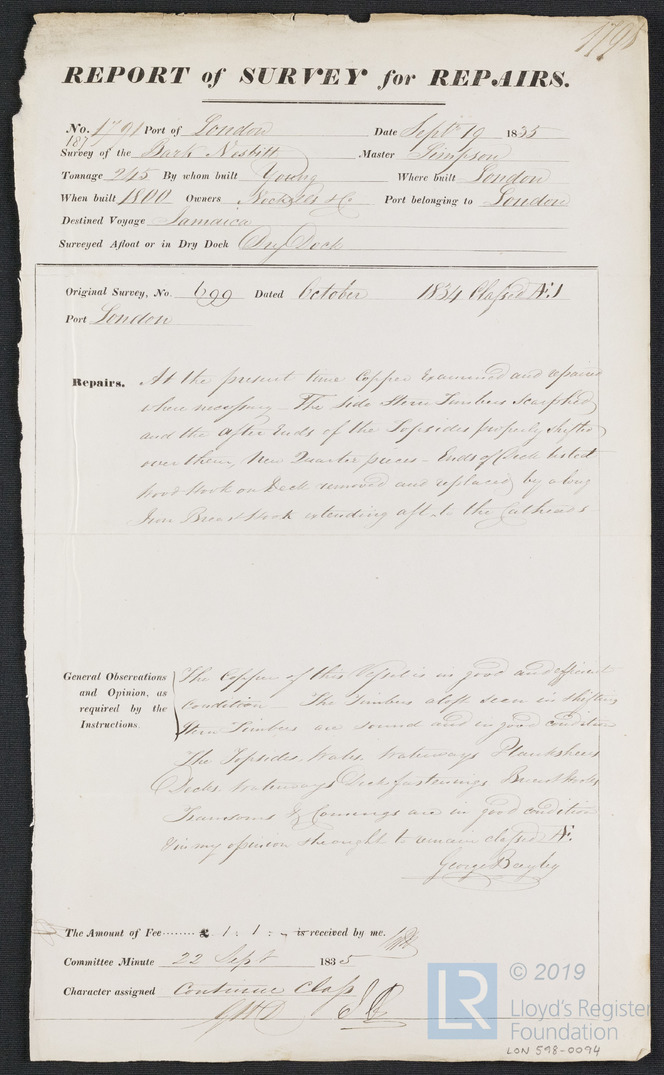 1791
REPORT of SURVEY for REPAIRS.
No. 1791 Port of London Date Septr 19 1835
187
Survey of the Bark Nesbitt Master Simpson
Tonnage 245 By whom built Young Where built London
When built 1800 Owners & Co Port belonging to London
Destined Voyage Jamaica
Surveyed Afloat or in Dry Dock Dry Dock
Original Survey, No. 699 Dated October 1834 Classed Æ1
Port London
Repairs. At the present time Copper Examined and repaired
where necessary – The Side Stern Timbers Scarphed
and the after Ends of the Topsides properly shifted
over them, New Quarter pieces – Ends of Deck listed
Wood Hook on Deck removed and replaced by a long
Iron Breast Hook extending aft to the Catheads
General Observations and Opinion, as required by the Instructions.
The Copper of this Vessel is in good and efficient
condition – The Timbers aloft seen in shifting
Stern Timbers are sound and in good condition
The Topsides, Wales, Waterways Plankshears
Decks, Waterways Deck fastenings Breast Hooks
Transoms & Comings are in good condition
& in my opinion she ought to remain classed Æ.
George Bayley
The Amount of Fee ........ £ 1 : 1 : - is received by me.
Committee Minute 22 Sept 1835
Character assigned Continue Class
© 2019
LR
Lloyd's Register
Foundation
LON 598-0094